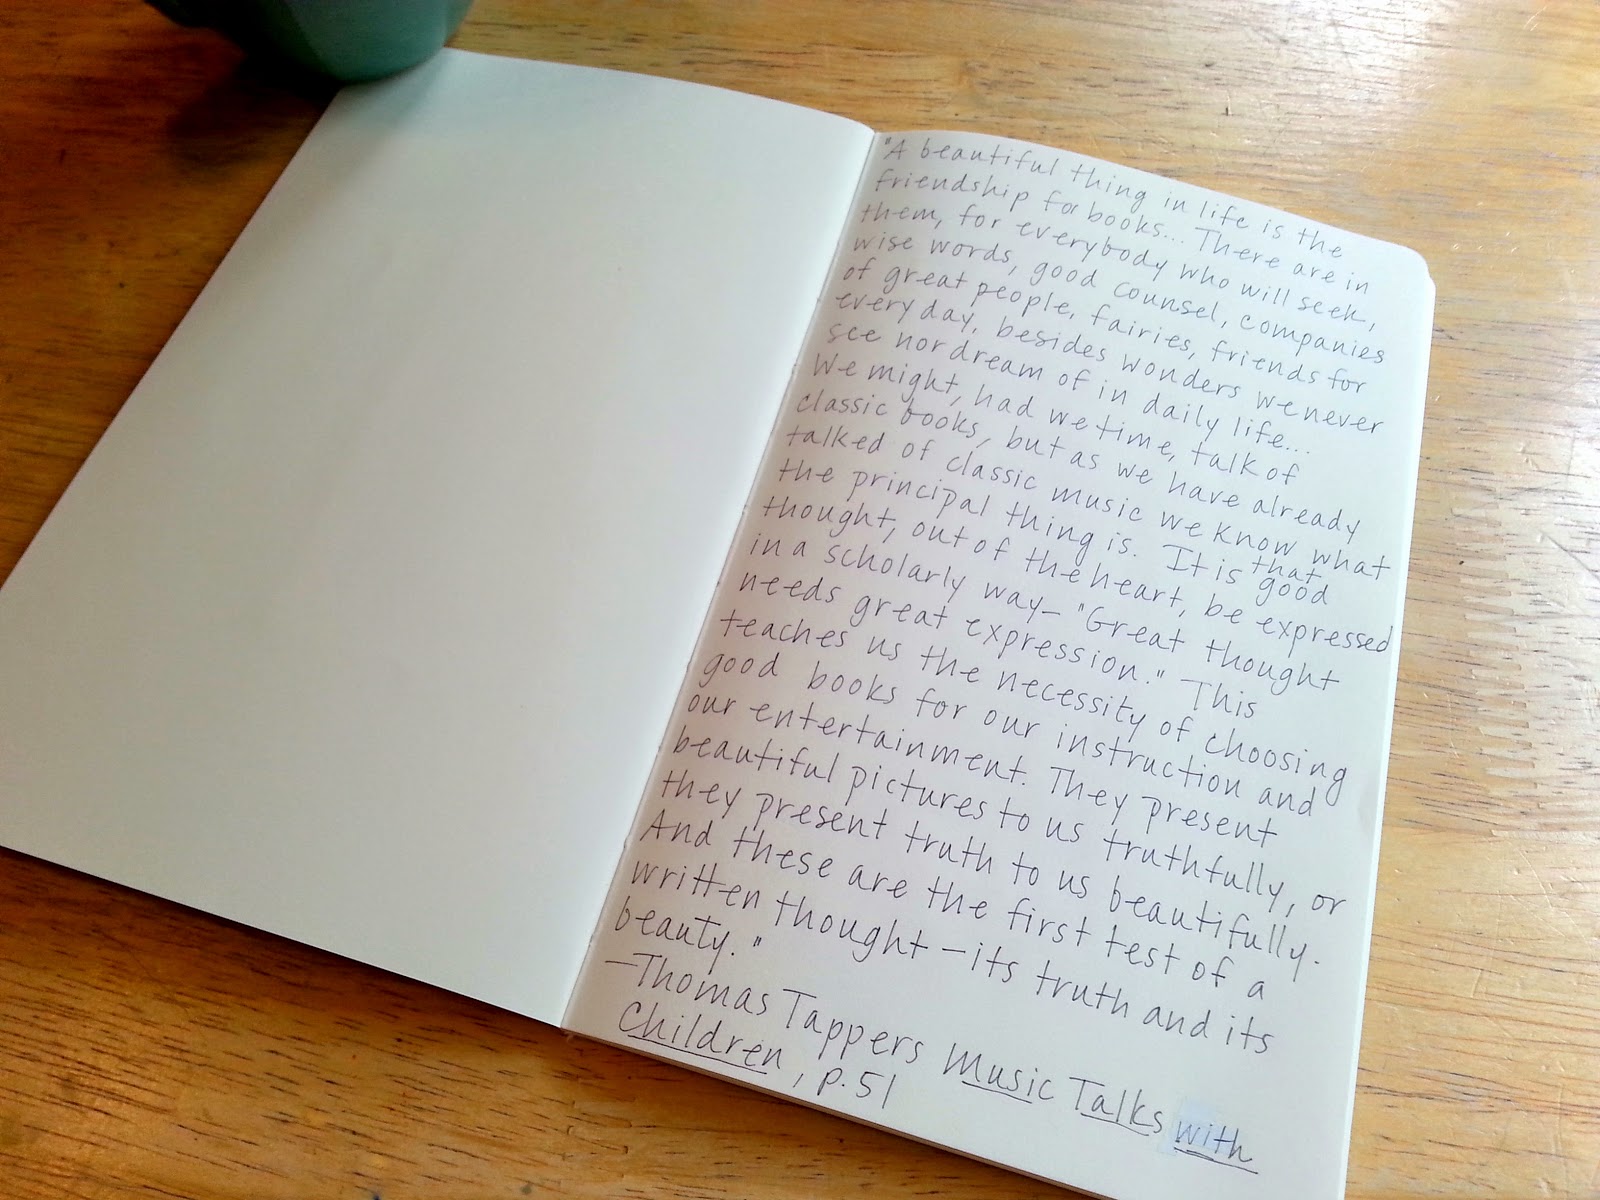 "A beautiful thing in life is the
friendship for books... There are in
them, for everybody who will seek,
wise words, good counsel, companies
of great people, fairies, friends for
every day, besides wonders we never
see nor dream of in daily life...
We might, had we time, talk of
classic books, but as we have already
talked of classic music we know what
the principal thing is. It is that good
thought, out of the heart, be expressed
in a scholarly way— "Great thought
needs great expression." This
teaches us the necessity of choosing
good books for our instruction and
our entertainment. They present
beautiful pictures to us truthfully, or
they present truth to us beautifully.
And these are the first test of a
written thought — its truth and its
beauty."
—Thomas Tappers Music Talks with
Children, p. 51